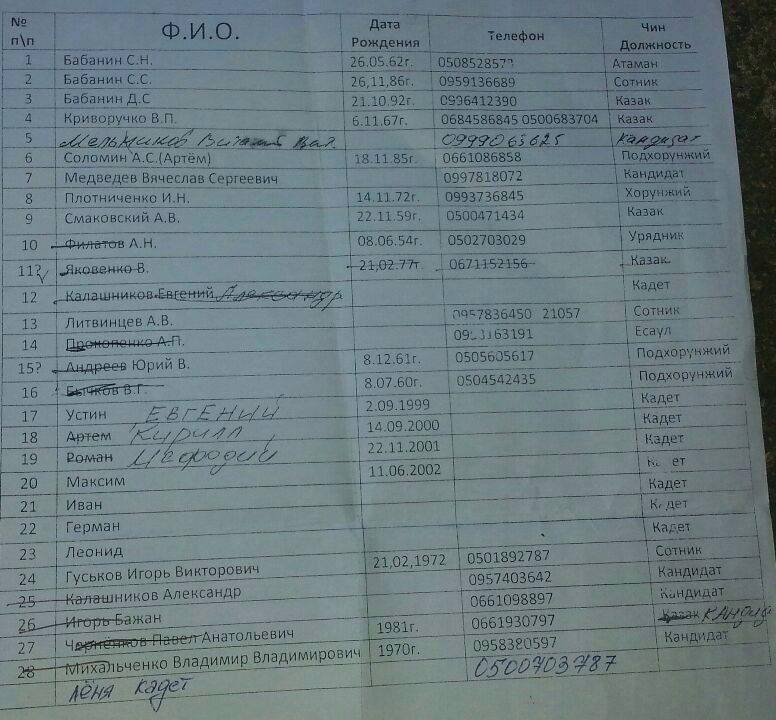 № п\п Ф.И.О. Дата Рождения Телефон Чин Должность
1 Бабанин С.Н. 26.05.62г. Атаман
2 Бабанин С.С. 26,11,86г. 0959136689 Сотник
3 Бабанин Д.С 21.10.92г. 0996412390 Казак
4 Криворучко В.П. 6.11.67г. 0684586845 0500683704 Казак
5 Мельников 0999065625 Кандидат
6 Соломин А.С.(Артём) 18.11.85г. 0661086858 Подхорунжий
7 Медведев Вячеслав Сергеевич 0997818072 Кандидат
8 Плотниченко И.Н. 14.11.72г. 0993736845 Хорунжий
9 Смаковский А.В. 22.11.59г. 0500471434 Казак
10 Филатов А.Н. 08.06.54г. 0502703029 Урядник
11? Яковенко В. 21,02.77г. 0671152156 Казак
12 Калашников Евгений Александр Кадет
13 Литвинцев А.В. 0957836450 21057 Сотник
14 Прокопенко А.П. Есаул
15? Андреев Юрий В. 8.12.61г. 0505605617 Подхорунжий
16 Бычков В.Г. 8.07.60г. 0504542435 Подхорунжий
17 Устин ЕВГЕНИЙ 2.09.1999 Кадет
18 Артем Кирилл 14.09.2000 Кадет
19 Роман Мефодий 22.11.2001 Кадет
20 Максим 11.06.2002 Кадет
21 Иван Кадет
22 Герман Кадет
23 Леонид
24 Гуськов Игорь Викторович 21,02,1972 0501892787 Сотник
25 Калашников Александр 0957403642 Кандидат
26 Игорь Бажан 0661098897 Кандидат
27 Черненков Павел Анатольевич 1981г. 0661930797 Казак
28 Михальченко Владимир Владимирович 1970г. 0958380597 Кандидат
Лёня кадет 0500703787